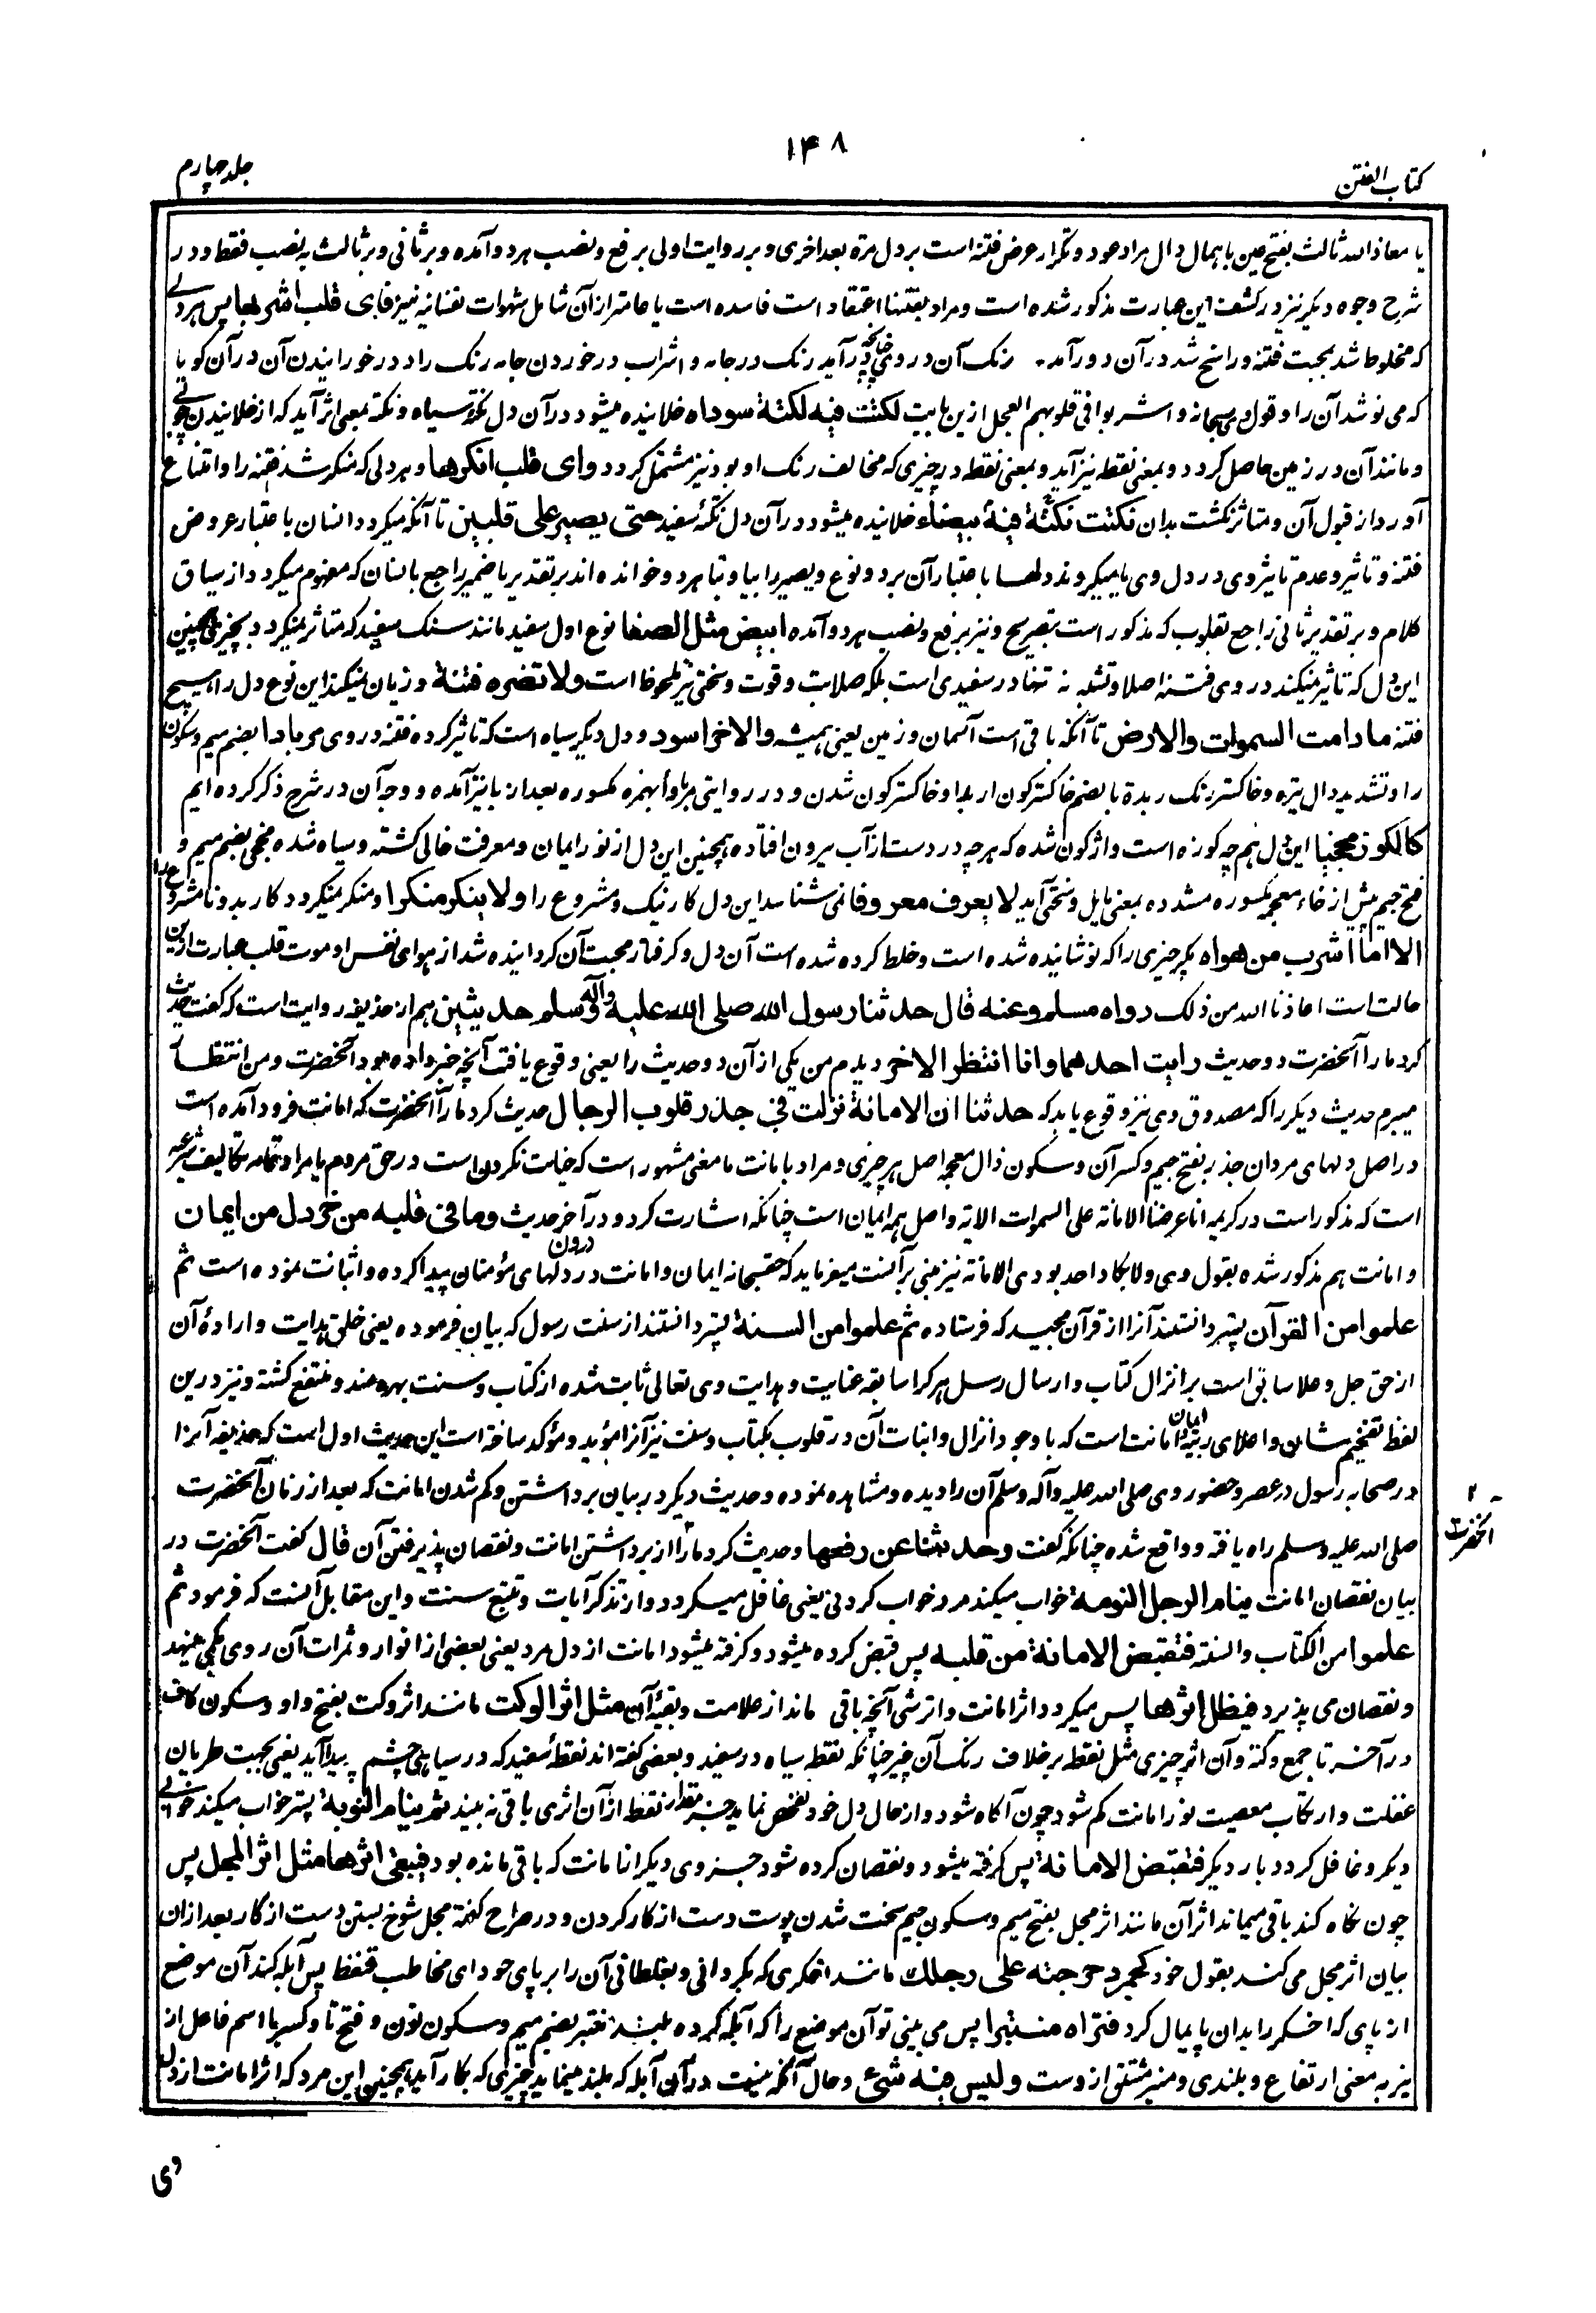 ۱۴۸
کتاب الفتن
جلد چهارم
یا معاذ الله ثالث بفتح عین با همال دال مراد عود و تکرار عرض فتنه است بر دل مرة بعد اخری و بر روایت اولی برفع و نصب هر دو آمده و بر ثانی و بر ثالث به نصب فقط و در
شرح وجوه دیگر نیز در کشف این عبارت مذکور شده است و مراد بفتنها اعتقاد است فاسده است یا عامتر از آن شامل شهوات نفسانیه نیز فای قلب اشربها پس هر دلی
که مخلوط شد بمحبت فتنه و راسخ شد در آن و در آمد رنک آن در وی چنانچه در آید رنک در جامه و اشراب در خوردن جامه رنک را و در خورانیدن آن در آن کویا
که می نوشد آن را و قول وی سبحانه و اشربوا فی قلوبهم العجل ازین بابست نکتت فیه نکتة سوداء خلانیده میشود در آن دل نکتۀ سیاه و نکته بمعنی اثر آید که از خلانیدن چوبی
و مانند آن در زمین حاصل کردد و بمعنی نقطه نیز آید و بمعنی نقطه در چیزی که مخالف رنک او بود نیز مشتمل کردد و ای قلب انکرها و هر دلی که منکر شد فتنه را و امتناع
آورد از قبول آن و متاثر نکشت بدان نکتت نکتة فیة بیضاء خلانیده میشود در آن دل نکتۀ سفید حتی یصیر علی قلبین تا آنکه میکردد انسان باعتبار عروض
فتنه و تاثیر و عدم تاثیر وی در دل وی یا میکروند دلها باعتبار آن بر دو نوع و یصیر را بیا و تا هر دو خوانده اند بر تقدیر یا ضمیر راجع بانسان که مفهوم میکردد از سیاق
کلام و بر تقدیر ثانی راجع بقلوب که مذکور است بتصریح و نیز برفع و نصب هر دو آمده ابیض مثل الصفا نوع اول سفید مانند سنک سفید که متاثر نمیکردد بچیزی همچنین
این دل که تاثیر نمیکند در وی فتنه اصلا و تشبه نه تنها در سفیدی است بلکه صلابت و قوت و سختی نیز ملحوظ است ولا تضره فتنة و زیان نمیکند این نوع دل را هیچ
فتنه ما دامت السموات والارض تا آنکه باقی است آسمان و زمین یعنی همیشه والاخر اسود و دل دیگر سیاه است که تاثیر کرده فتنه در وی مربادا بضم میم و سکون
را و تشدید دال تیره و خاکستر رنک ربدة بالضم خاکسترکون اربدا و خاکسترکون شدن و در روایتی مربأدا بهمزه مکسوره بعد از با نیز آمده و وجه آن در شرح ذکر کرده ایم
کالکوز مجخیا این دل همچه کوزه است واژکون شده که هر چه در دست از آب بیرون افتاده همچنین این دل از نور ایمان و معرفت خالی کشته و سیاه شده مجخی بضم میم و
فتح جیم پیش از خاء معجمه مکسوره مشدده بمعنی مایل و منحنی آید لا یعرف معروفا نمی شناسد این دل کار نیک و مشروع را ولا ینکر منکرا و منکر نمیکردد کار بد و نامشروع را
الا ما اشرب من هواه مکر چیزی را که نوشانیده شده است و خلط کرده شده است آن دل و گرفتار محبت آن کردانیده شد از هوای نفس او موت قلب عبارت ازین
حالت است اعاذنا الله من ذلک رواه مسلم وعنه قال حدثنا رسول الله صلی الله علیه وآله وسلم حدیثین هم از حذیفه روایت است که گفت حدیث
کرد ما را آنحضرت دو حدیث رایت احدهما وانا انتظر الاخر دیدم من یکی از آن دو حدیث را یعنی وقوع یافت آنچه خبر داده بود آنحضرت و من انتظار
میبرم حدیث دیگر را که مصدوق وی نیز وقوع یابد که حدثنا ان الامانة نزلت فی جذر قلوب الرجال حدیث کرد ما را آنحضرت که امانت فرود آمده است
در اصل دلهای مردان جذر بفتح جیم و کسر آن و سکون ذال معجمه اصل هر چیزی و مراد بامانت یا معنی مشهور است که خیانت نکردن است در حق مردم یا مراد تمامه تکالیف شرعیه
است که مذکور است در کریمه انا عرضنا الامانة علی السموات الایة و اصل همه ایمان است چنانکه اشارت کرد و در آخر حدیث وما فی قلبه من خردل من ایمان
و امانت هم مذکور شده بقول وی ولا یکاد احد یودی الامانة نیز مبنی بر آنست میفرماید که حقسبحانه ایمان و امانت در درون دلهای مؤمنان پیدا کرده و اثبات نموده است ثم
علموا من القرآن پستر دانستند آنرا از قرآن مجید که فرستاده ثم علموا من السنة پستر دانستند از سنت رسول که بیان فرموده یعنی خلق هدایت و ارادۀ آن
از حق جل و علا سابق است بر انزال کتاب و ارسال رسل هر کرا سابقه عنایت و هدایت وی تعالی ثابت شده از کتاب و سنت بهره مند و منتفع کشته و نیز درین
لفظ تفخیم شان و اعلای رتبه ایمان و امانت است که با وجود انزال و اثبات آن در قلوب بکتاب و سنت نیز آنرا مؤید و مؤکد ساخته است این حدیث اول است که حذیفه آنرا
در صحابه رسول در عصر و حضور وی صلی الله علیه وآله وسلم آن را دیده و مشاهده نموده و حدیث دیگر در بیان برداشتن و کم شدن امانت که بعد از زمان آنحضرت
آنحضرت
صلی الله علیه وسلم راه یافته و واقع شده چنانکه گفت وحدثنا عن رفعها و حدیث کرد ما را از برداشتن امانت و نقصان پذیرفتن آن قال گفت آنحضرت در
بیان نقصان امانت ینام الرجل النومة خواب میکند مرد خواب کردنی یعنی غافل میکردد و از تذکر آیات و تتبع سنت و این مقابل آنست که فرمود ثم
علموا من الکتاب والسنة فتقبض الامانة من قلبه پس قبض کرده میشود و گرفته میشود امانت از دل مرد یعنی بعضی از انوار و ثمرات آن روی بکمی مینهد
و نقصان می پذیرد فیظل اثرها پس میکردد اثر امانت و اثر شی آنچه باقی ماند از علامت و بقیۀ آن مثل اثر الوکت مانند اثر وکت بفتح واو و سکون کاف
در آخر تا جمع وکتة و آن اثر چیزی مثل نقطه بر خلاف رنک آن چیز چنانکه نقطه سیاه در سفید و بعضی گفته اند نقطۀ سفید که در سیاهی چشم پیدا آید یعنی بجهت طریان
غفلت و ارتکاب معصیت نور امانت کم شود چون آگاه شود و از حال دل خود تفحص نماید جز مقدار نقطه از آن اثری باقی نه بیند ثم ینام النومة پستر خواب میکند خوابی
دیگر و غافل کردد بار دیگر فتقبض الامانة پس گرفته میشود و نقصان کرده شود جزوی دیگر از امانت که باقی مانده بود فیبقی اثرها مثل اثر المجل پس
چون نگاه کند باقی میماند اثر آن مانند اثر مجل بفتح میم و سکون جیم سخت شدن پوست دست از کار کردن و در صراح گفته مجل شوخ بستن دست از کار بعد ازان
بیان اثر مجل می کند بقول خود کجمر دحرجته علی رجلک مانند اخکری که بکردانی و بغلطانی آن را بر پای خود ای مخاطب فنفط پس آبله کند آن موضع
از پای که اخکر را بدان پایمال کرد فتراه منتبرا پس می بینی تو آن موضع را که آبله کرده بلند منتبر بضم میم و سکون نون و فتح تا و کسر با اسم فاعل از
نبر به معنی ارتفاع و بلندی و منبر مشتق از وست ولیس فیه شئ و حال آنکه نیست در آن آبله که بلند مینماید چیزی که بکار آید همچنین این مرد که اثر امانت از دل
وی